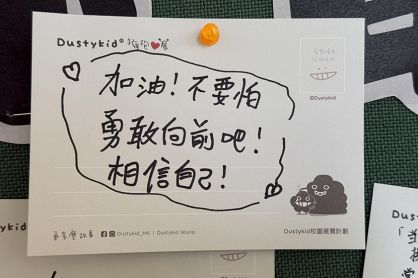 Dustykid®
加油！不要怕
勇敢向前吧！
相信自己！
©Dustykid
Dustykid_HK | Dustykid.World
Dustykid校園展覽計劃